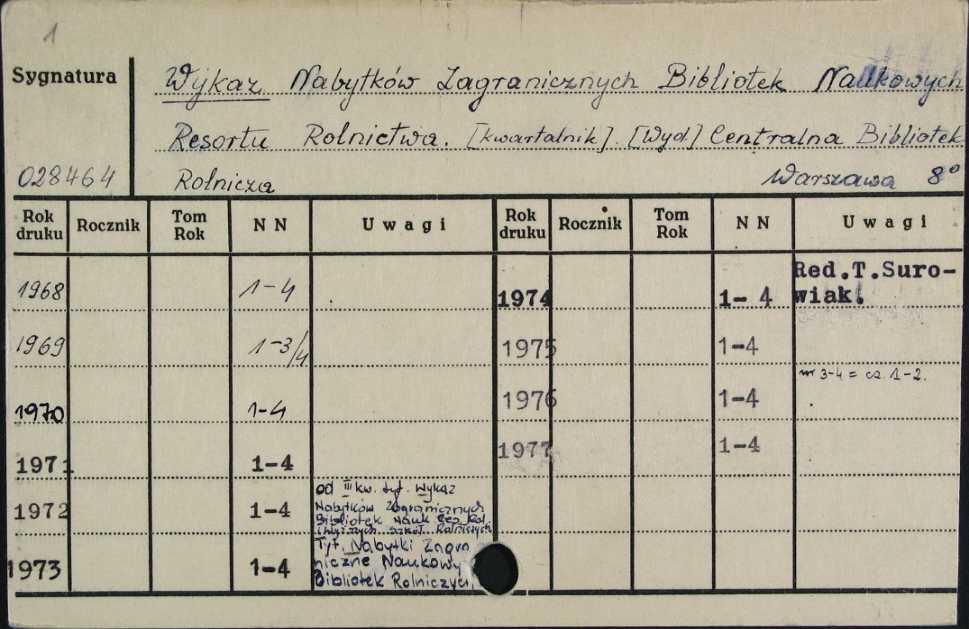 1
Sygnatura
Wykaz Nabytków Zagranicznych Bibliotek Naukowych
Resortu Rolnictwa. [kwartalnik]. [Wyd] Centralna Bibliotek
028464
Rolnicza Warszawa 8°
Rok druku Rocznik Tom Rok N N Uwagi Rok druku Rocznik Tom Rok N N Uwagi
1968 1-4 1974 1- 4 Red.T.Suro-
wiak.
1969 1-3/4 1975 1-4
nr 3-4 = cz. 1-2.
1970 1-4 1976 1-4
1971 1-4 1977 1-4
1972 1-4 od III kw. tyt. Wykaz
Nabytków Zagranicznych
Bibliotek Nauk Res Rol
i Wyższych Szkół Rolniczych
1973 1-4 Tyt. Nabytki Zagra
niczne Naukowy
Bibliotek Rolniczych